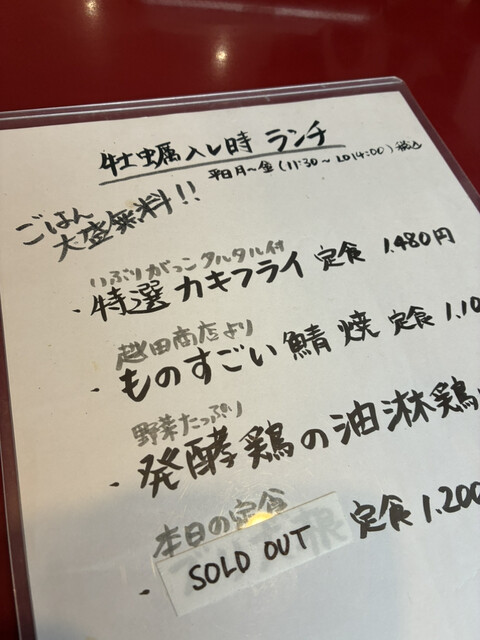 牡蠣入レ時 ランチ
平日月~金(11:30~LO14:00)税込
ごはん
大盛無料!!
いぶりがっこタルタル付
・特選カキフライ 定食 1,480円
越田商店より
・ものすごい鯖焼 定食 1,10
野菜たっぷり
・発酵鶏の油淋鶏
本日の定食
・SOLD OUT 定食 1,200